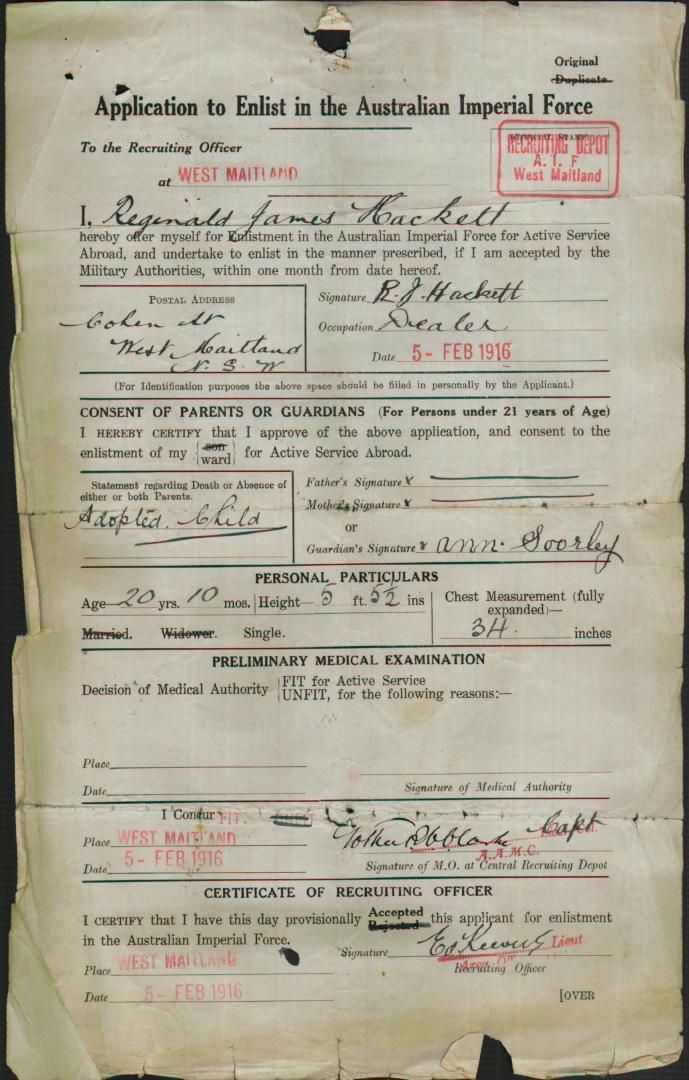 Original
Duplicate
Application to Enlist in the Australian Imperial Force
To the Recruiting Officer
at WEST MAITLAND
RECRUITING DEPOT
A. I. F
West Maitland
I, Reginald James Hackett
hereby offer myself for Enlistment in the Australian Imperial Force for Active Service
Abroad, and undertake to enlist in the manner prescribed, if I am accepted by the
Military Authorities, within one month from date hereof.
POSTAL ADDRESS
Cohen St
West Maitland
N. S. W
Signature R. J. Hackett
Occupation Dealer
Date 5- FEB 1916
(For Identification purposes the above space should be filled in personally by the Applicant.)
CONSENT OF PARENTS OR GUARDIANS (For Persons under 21 years of Age)
I HEREBY CERTIFY that I approve of the above application, and consent to the
enlistment of my {son
ward} for Active Service Abroad.
Statement regarding Death or Absence of
either or both Parents.
Adopted Child
Father's Signature x
Mother's Signature x
or
Guardian's Signature x Ann. Soorley
PERSONAL PARTICULARS
Age 20 yrs. 10 mos. Height 5 ft. 5½ ins
Chest Measurement (fully
expanded)—
34 inches
Married. Widower. Single.
PRELIMINARY MEDICAL EXAMINATION
Decision of Medical Authority {FIT for Active Service
UNFIT, for the following reasons:—
Place
Date
Signature of Medical Authority
I Concur FIT.
Place WEST MAITLAND
Date 5- FEB 1916
Capt
A.A.M.C.
Signature of M.O. at Central Recruiting Depot
CERTIFICATE OF RECRUITING OFFICER
I CERTIFY that I have this day provisionally Accepted
Rejected this applicant for enlistment
in the Australian Imperial Force.
Signature Lieut.
Recruiting Officer
Place WEST MAITLAND
Date 5- FEB 1916
[OVER